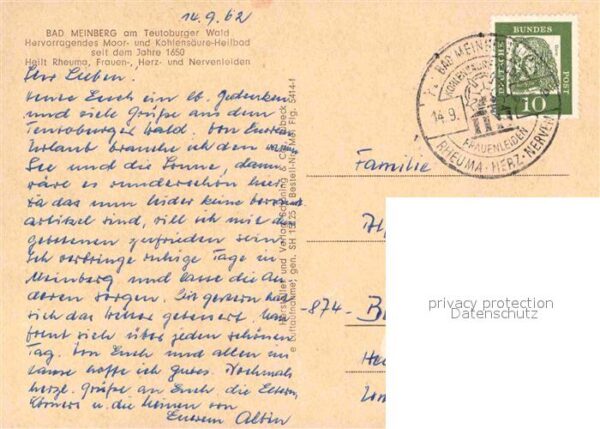 14.9.62
BAD MEINBERG am Teutoburger Wald
Hervorragendes Moor- und Kohlensäure-Heilbad
seit dem Jahre 1650
Heilt Rheuma, Frauen-, Herz- und Nervenleiden
Ihr Lieben.
Euch ein lb. Gedenken
und viele Grüße aus dem
Teutoburger Wald. Von Eurem
Urlaub brauche ich den
See und die Sonne, dann
wäre es wunderschön hier.
da das nun leider keine
artikel sind, will ich mit d
gebotenen zufrieden sein.
Ich verbringe ruhige Tage in
Meinberg und lasse die An
deren sorgen. Seit gestern hat
sich das Wetter gebessert. Man
freut sich über jeden schönen
Tag. Von Euch und allen zu
Hause hoffe ich gutes. Nochmals
herzl. Grüße an Euch die Eltern,
u. die kleinen von
Eurem Albin
Hersteller und Verlag Schöning & Co. Lübeck
Luftaufnahme; gen. SH 15 Bestell-Nr. Mei Flg. 5414-1
BAD MEINBERG
14.9.
FRAUENLEIDEN
RHEUMA · HERZ · NERVEN
DEUTSCHE BUNDES POST
10
Familie
-874-
privacy protection
Datenschutz